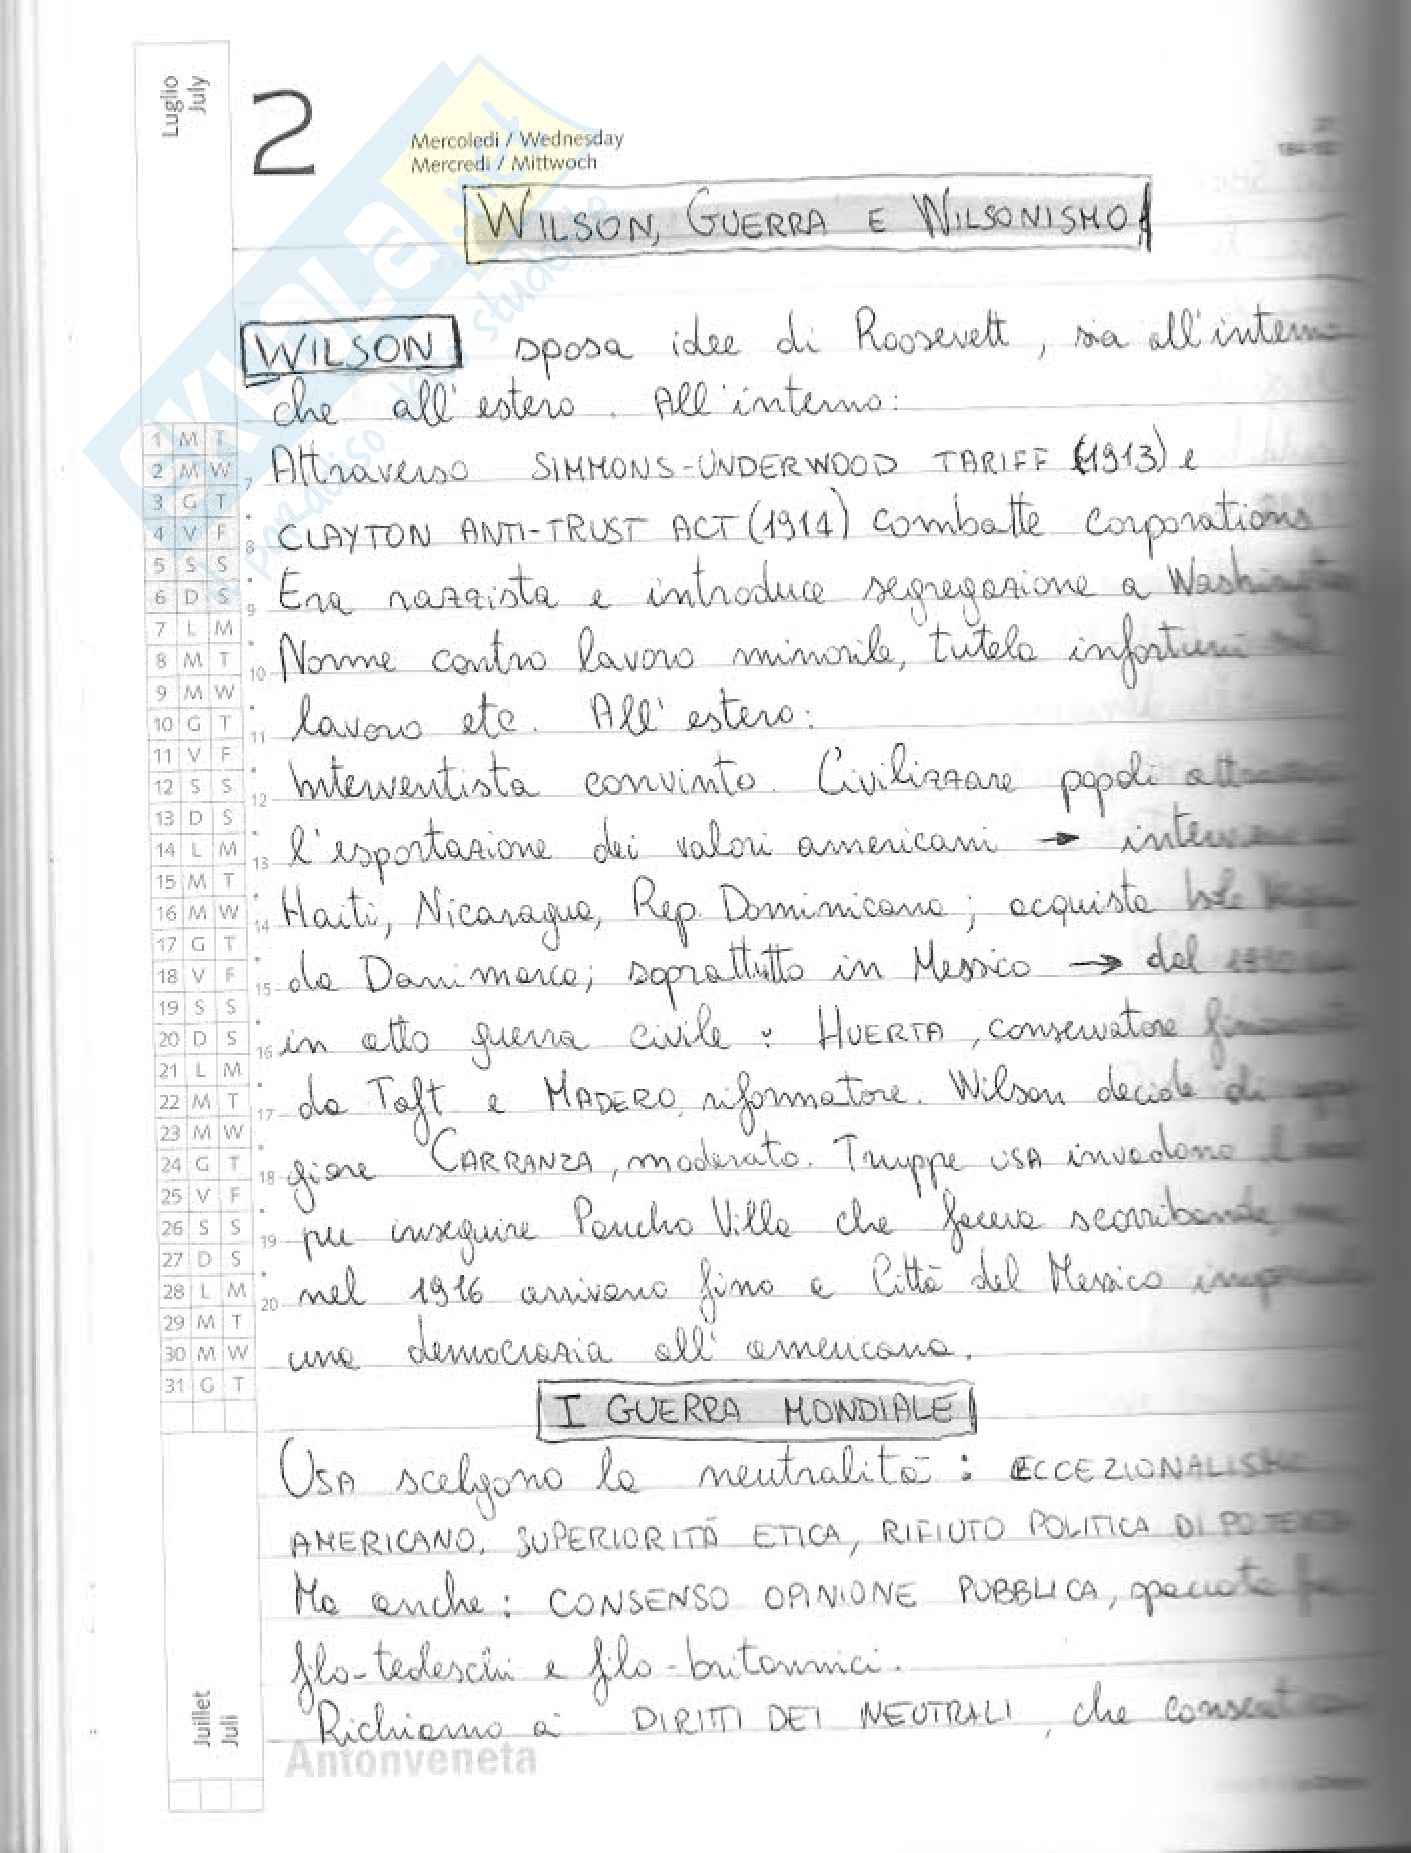 Luglio
July
2
Mercoledì / Wednesday
Mercredi / Mittwoch
SKUOLA.net
paradiso dello studente
WILSON, GUERRA E WILSONISMO
WILSON sposa idee di Roosevelt, sia all'interno
che all'estero. All'interno:
Attraverso SIMMONS-UNDERWOOD TARIFF (1913) e
CLAYTON ANTI-TRUST ACT (1914) combatte corporations
Era razzista e introduce segregazione a Washington
Norme contro lavoro minorile, tutela infortuni sul
lavoro etc. All'estero:
Interventista convinto. Civilizzare popoli attraverso
l'esportazione dei valori americani → interviene
Haiti, Nicaragua, Rep. Dominicana; acquista Isole
da Danimarca; soprattutto in Messico → dal 1910
in atto guerra civile: HUERTA, conservatore
da Taft e MADERO, riformatore. Wilson decide di
giare CARRANZA, moderato. Truppe USA invadono
per inseguire Pancho Villa che faceva scorribande,
nel 1916 arrivano fino a Città del Messico
una democrazia all'americana.
I GUERRA MONDIALE
USA scelgono la neutralità: ECCEZIONALISMO
AMERICANO, SUPERIORITÀ ETICA, RIFIUTO POLITICA DI POTENZA
Ma anche: CONSENSO OPINIONE PUBBLICA, spaccata fra
filo-tedeschi e filo-britannici.
Richiamo a DIRITTI DEI NEUTRALI, che
1 M T
2 M W
3 G T
4 V F
5 S S
6 D S
7 L M
8 M T
9 M W
10 G T
11 V F
12 S S
13 D S
14 L M
15 M T
16 M W
17 G T
18 V F
19 S S
20 D S
21 L M
22 M T
23 M W
24 G T
25 V F
26 S S
27 D S
28 L M
29 M T
30 M W
31 G T
7
8
9
10
11
12
13
14
15
16
17
18
19
20
Juillet
Juli
Antonveneta